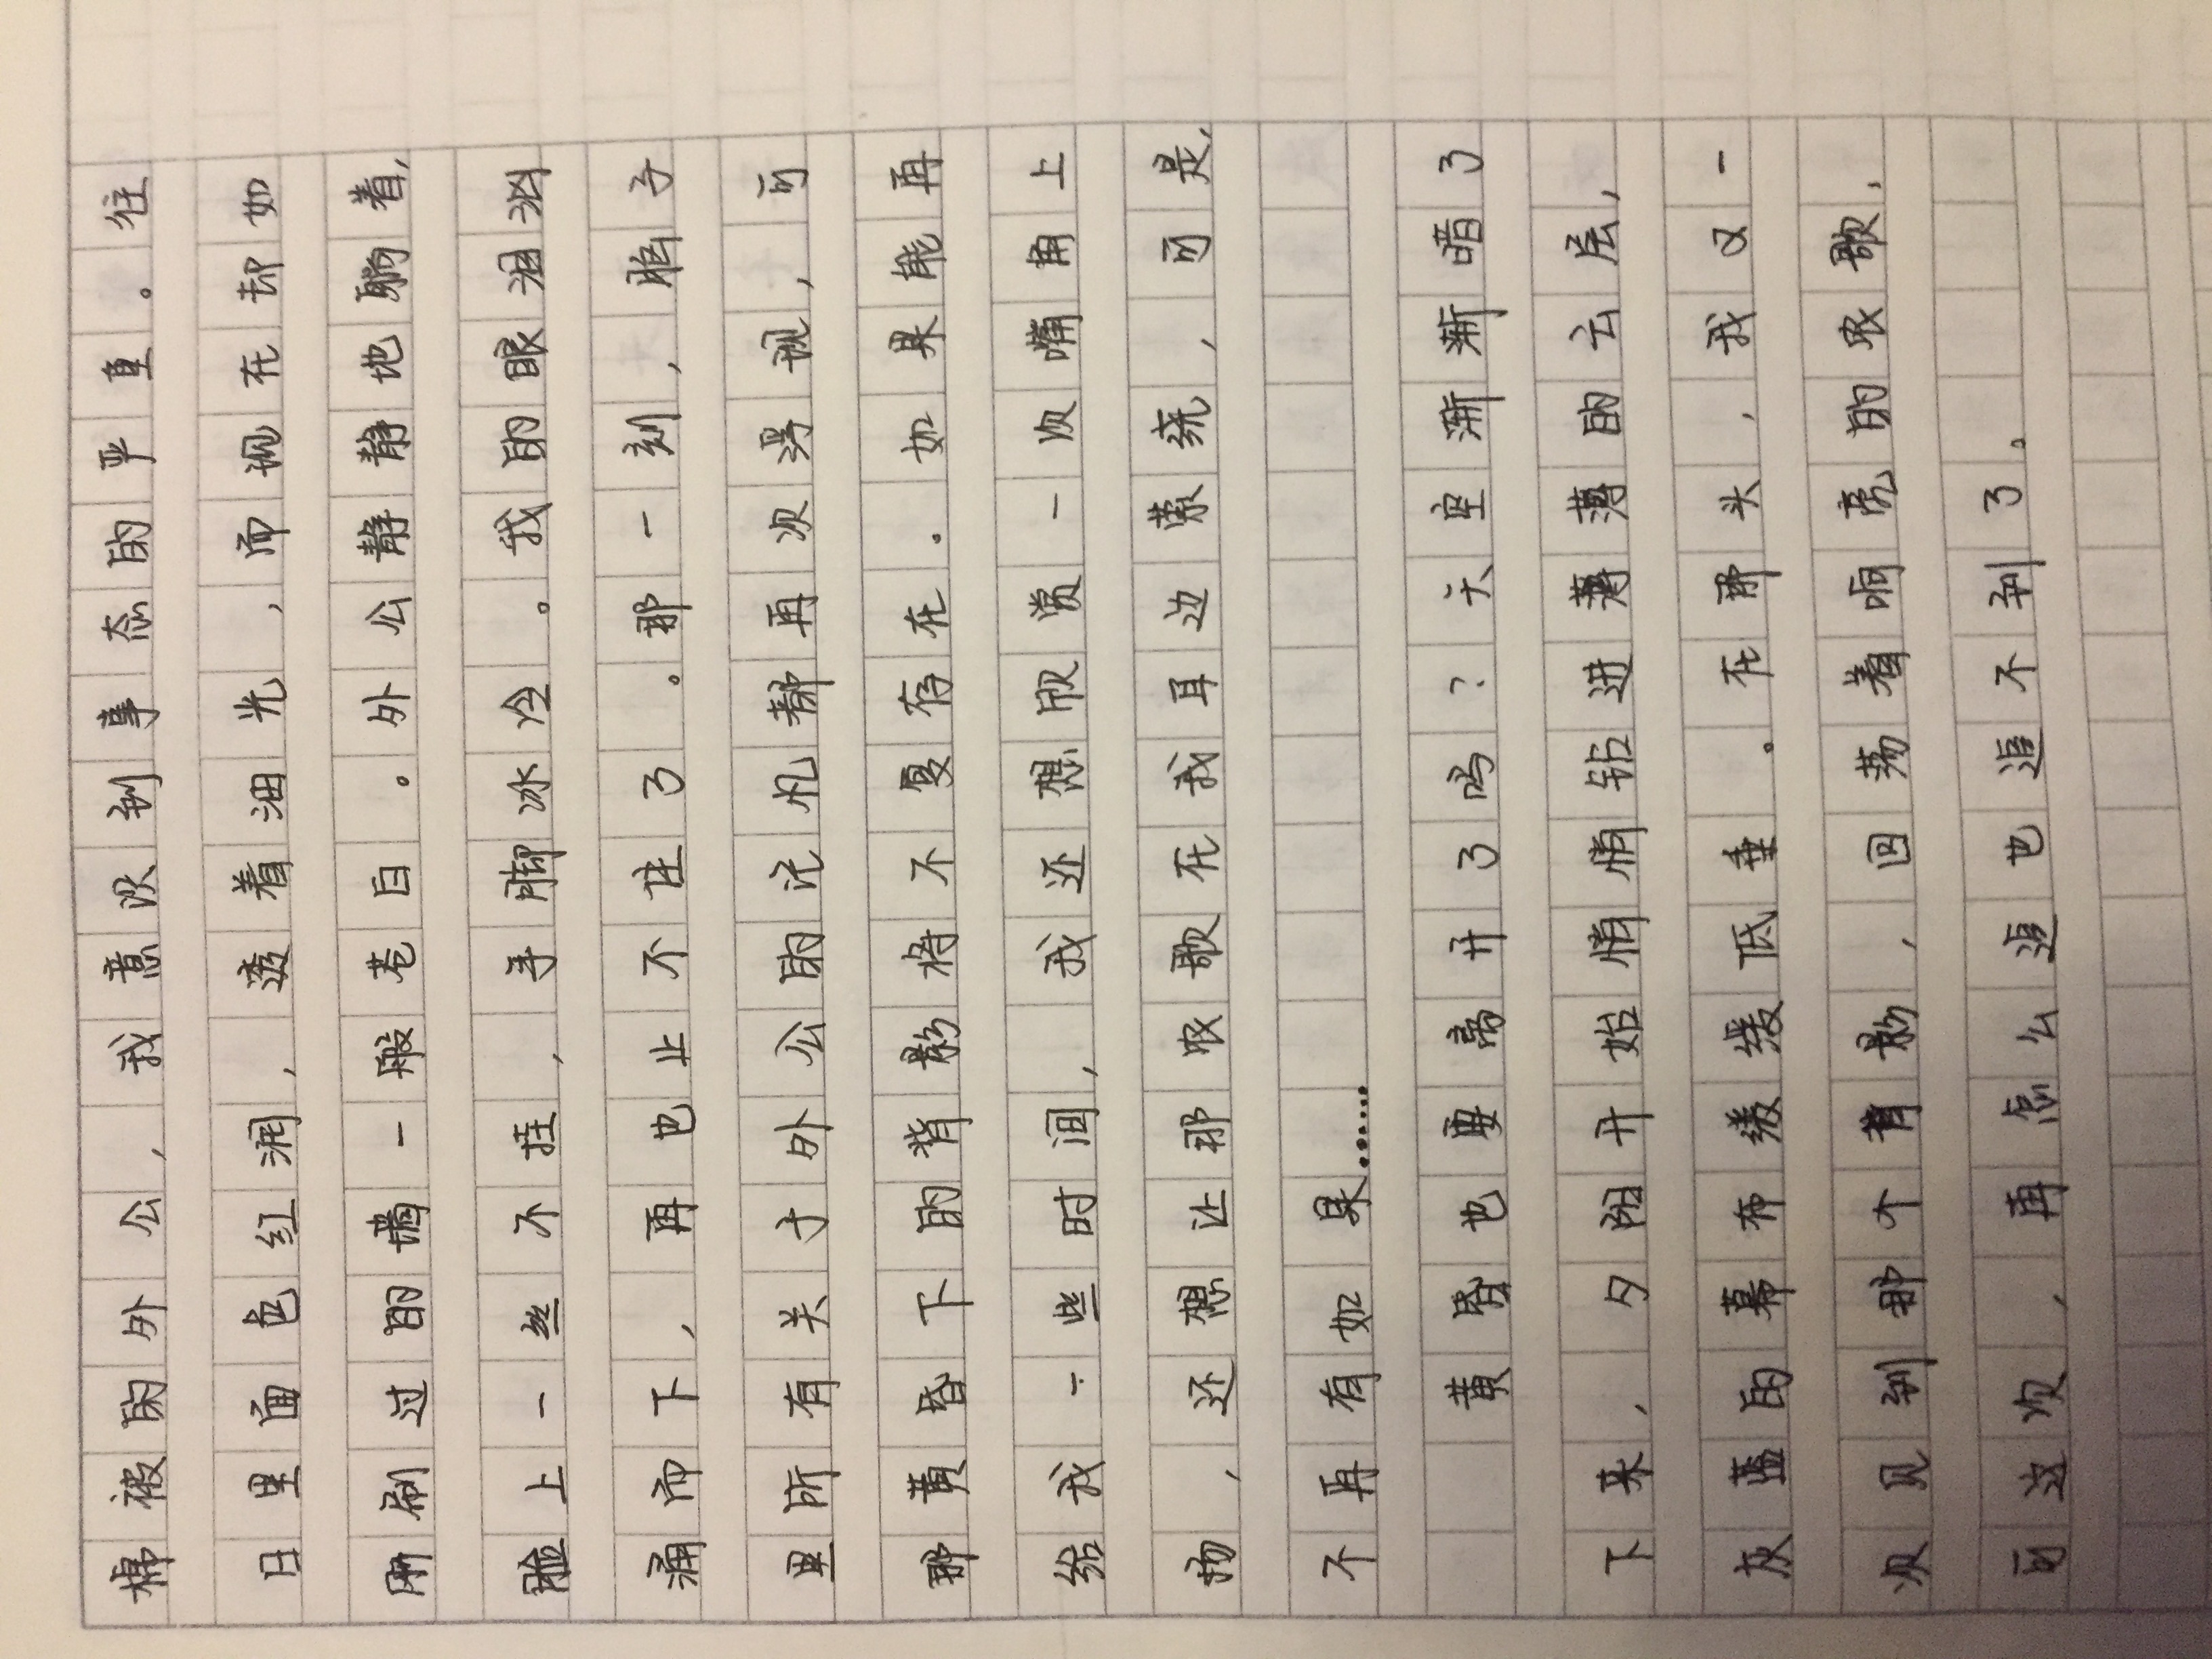 棉被的外公，我意识到事态的严重。往
日里面色红润，透着油光，而现在却如
所刷过的墙一般苍白。外公静静地躺着，
脸上一丝不挂，手脚冰冷。我的眼泪汹
涌而下，再也止不住了。那一刻，脑子
里所有关于外公的记忆都再次浮现，可
那黄昏下的背影将不复存在。如果能再
给我一些时间，我还想欣赏一次嘴角上
扬，还想让那哝歌在我耳边萦绕，可是，
不再有如果……
黄昏也要离开了吗？天空渐渐暗了
下来，夕阳开始悄悄钻进薄薄的云层，
灰蓝的幕布缓缓低垂。在那头，我又一
次见到那个背影，回荡着响亮的哝歌，
可这次，再怎么追也追不到了。